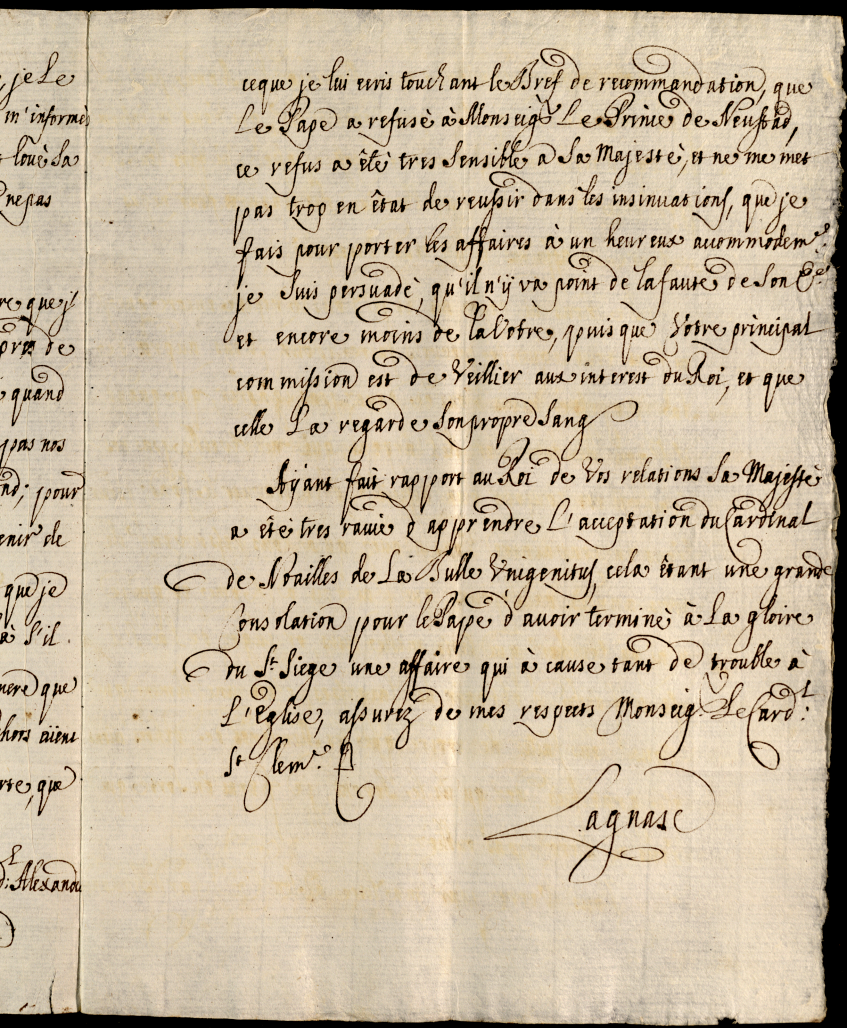 je Le
m'informé
loüé Sa
ne pas
re que j'
près de
quand
pas nos
nd; pour
enir de
que je
à s'il.
nere que
hors aient
rte, que
d: Alexand
ceque je lui ecris touchant le Bref de recommandation, que
Le Pape a refusè à Monseigr Le Prince de Neustad,
ce refus a étè tres Sensible a Sa Majestè, et ne me met
pas trop en êtat de reussir dans les insinuations, que je
fais pour porter les affaires à un heureux accommodemt.
je Suis persuadè, qu'il n'ÿ va point de la faute de Son Ece.
et encore moins de la Votre, puis que Votre principal
commission est de Veillier aux interest du Roi, et que
celle La regarde Son propre Sang
Aÿant fait rapport au Roi de Vos relations Sa Majestè
a étè tres ravie d'apprendre L'acceptation du Cardinal
de Noailles de La Bulle Vnigenitus, cela êtant une grande
Consolation pour le Pape d'avoir terminè à La gloire
du St. Siege une affaire qui à cause tant de trouble à
L'Eglise, assurez de mes respects Monseigr. Le Cardl:
St Clemt.
Lagnasc